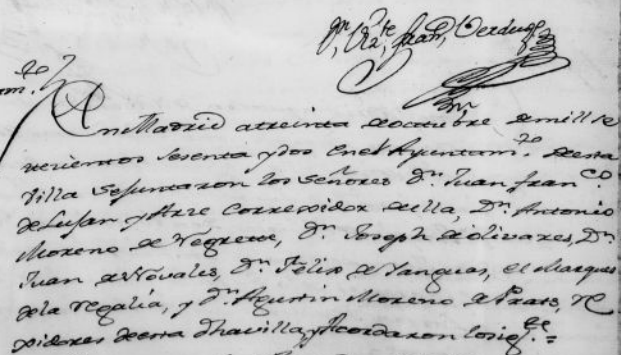 Dn. Vzte. Fran, Verdugo
En Madrid atreinta deoctubre demill se
tecientos sesenta ydos Enel Ayuntam.to deesta
Villa seJuntaron los señores Dn. Juan Fran.co
deLujan y Arze Correxidor deella, Dn. Antonio
Moreno de Negrete, Dn. Joseph deolivares, Dn.
Juan deNovales, Dn. Felix deYanguas, el Marques
dela regalia, y Dn. Agustin Moreno dePrado, Re
xidores deesta dhavilla yAcordaron losig.te =